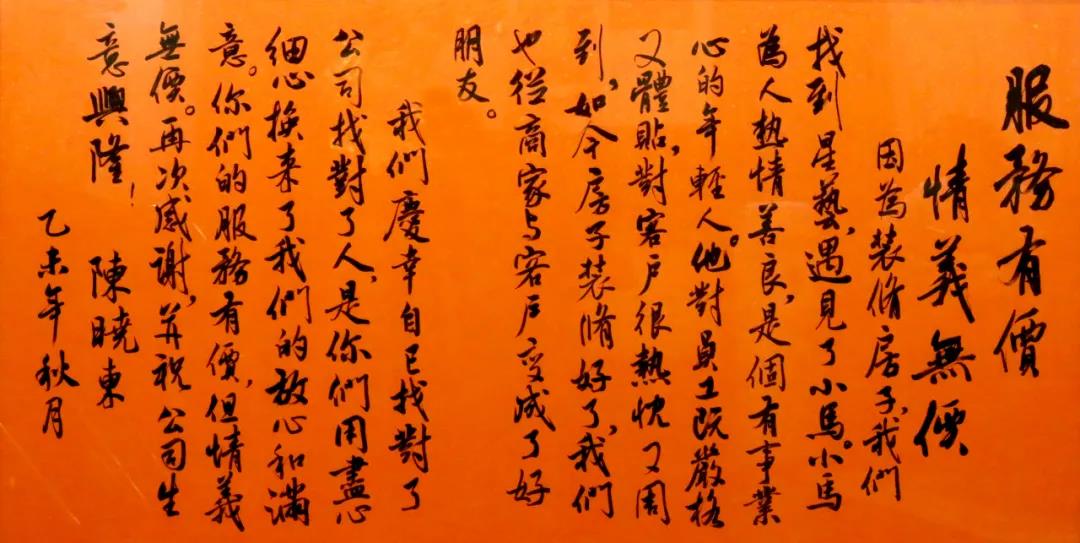 服務有價
情義無價
因為装脩房子,我們
找到星藝,遇見了小馬。小馬
為人熱情善良,是個有事業
心的年輕人。他對員工既嚴格
又體貼,對客戶很熱忱又周
到,如今房子装脩好了,我們
也從商家与客戶变成了好
朋友。
我們慶幸自已找對了
公司找對了人,是你們用盡心
细心换来了我們的放心和滿
意。你們的服務有價,但情義
無價。再次感謝,并祝公司生
意興隆!
陳曉東
乙未年秋月